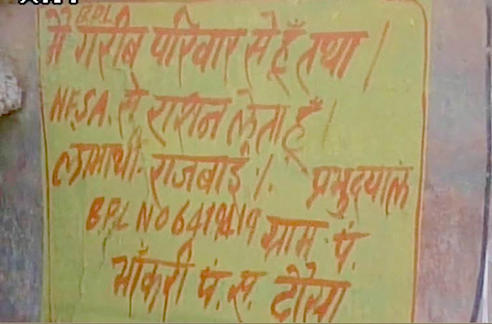 BPL
मै गरीब परिवार से हूँ तथा
NFSA. से राशन लेता हूँ।
लाभार्थी राजबाई /. प्रभुदयाल
BPL NO ग्राम पं.
भाँकरी पं. स. दौसा